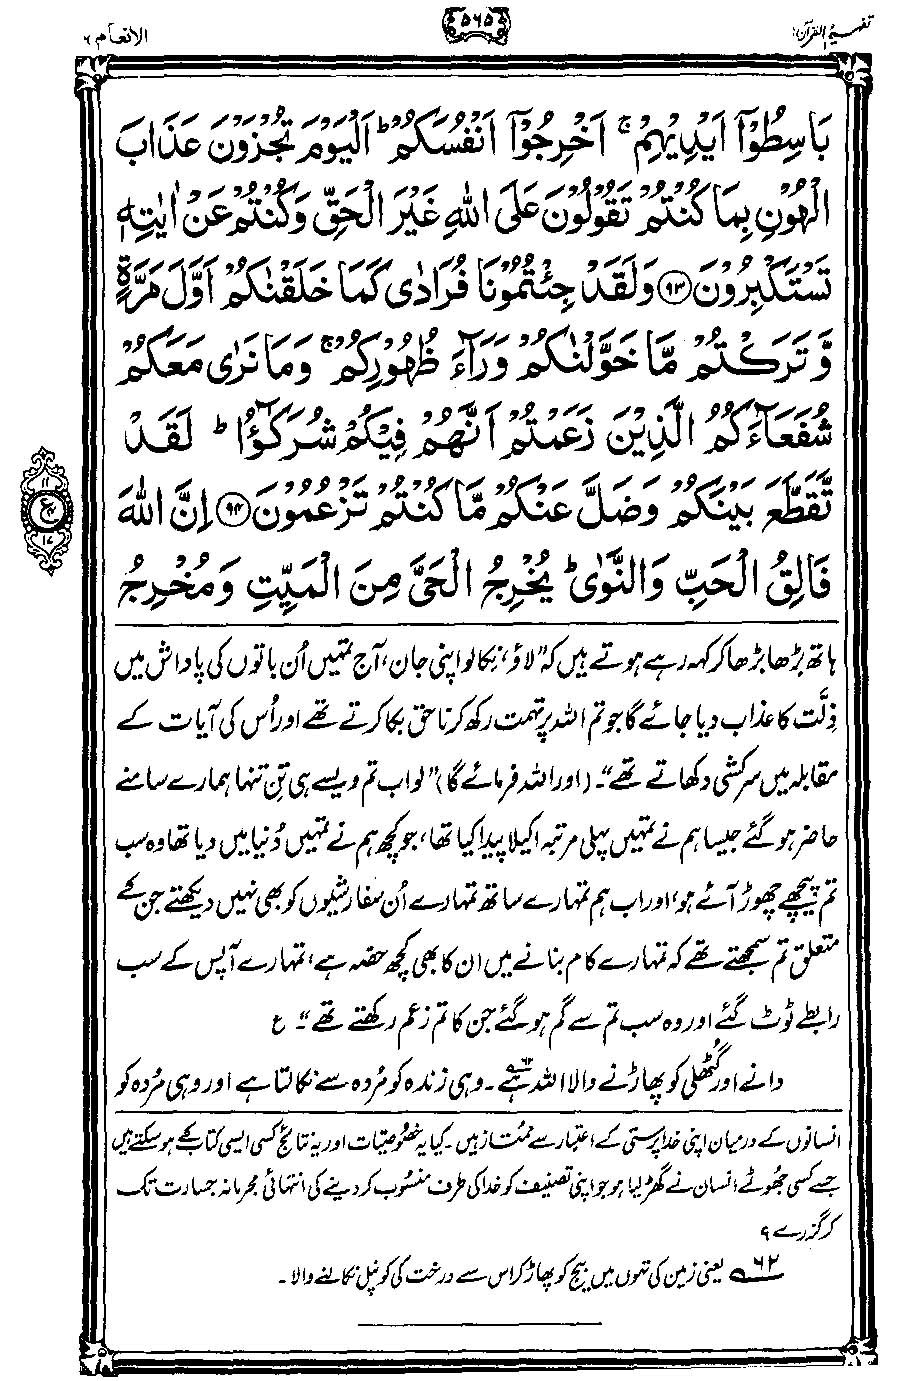 تفہیم القرآن ۱
۵۶۵
الانعام ۶
بَاسِطُوْۤا اَيْدِيْهِمْ ۚ اَخْرِجُوْۤا اَنْفُسَكُمْ ؕ اَلْيَوْمَ تُجْزَوْنَ عَذَابَ
الْهُوْنِ بِمَا كُنْتُمْ تَقُوْلُوْنَ عَلَى اللّٰهِ غَيْرَ الْحَقِّ وَكُنْتُمْ عَنْ اٰيٰتِهٖ
تَسْتَكْبِرُوْنَ ﴿۹۳﴾ وَلَقَدْ جِئْتُمُوْنَا فُرَادٰى كَمَا خَلَقْنٰكُمْ اَوَّلَ مَرَّةٍ
وَّتَرَكْتُمْ مَّا خَوَّلْنٰكُمْ وَرَآءَ ظُهُوْرِكُمْ ۚ وَمَا نَرٰى مَعَكُمْ
شُفَعَآءَكُمُ الَّذِيْنَ زَعَمْتُمْ اَنَّهُمْ فِيْكُمْ شُرَكٰٓؤُا ؕ لَقَدْ
تَّقَطَّعَ بَيْنَكُمْ وَضَلَّ عَنْكُمْ مَّا كُنْتُمْ تَزْعُمُوْنَ ﴿۹۴﴾ اِنَّ اللّٰهَ
فَالِقُ الْحَبِّ وَالنَّوٰى ؕ يُخْرِجُ الْحَىَّ مِنَ الْمَيِّتِ وَمُخْرِجُ
۱۱
ع
۱۷
ہاتھ بڑھا بڑھا کر کہہ رہے ہوتے ہیں کہ "لاؤ، نکالو اپنی جان، آج تمہیں اُن باتوں کی پاداش میں
ذِلّت کا عذاب دیا جائے گا جو تم اللہ پر تہمت رکھ کر ناحق بکا کرتے تھے اور اُس کی آیات کے
مقابلہ میں سرکشی دکھاتے تھے"۔ (اور اللہ فرمائے گا) "لو اب تم ویسے ہی تنِ تنہا ہمارے سامنے
حاضر ہو گئے جیسا ہم نے تمہیں پہلی مرتبہ اکیلا پیدا کیا تھا، جو کچھ ہم نے تمہیں دُنیا میں دیا تھا وہ سب
تم پیچھے چھوڑ آئے ہو، اور اب ہم تمہارے ساتھ تمہارے اُن سفارشیوں کو بھی نہیں دیکھتے جن کے
متعلق تم سمجھتے تھے کہ تمہارے کام بنانے میں ان کا بھی کچھ حصہ ہے، تمہارے آپس کے سب
رابطے ٹوٹ گئے اور وہ سب تم سے گم ہو گئے جن کا تم زعم رکھتے تھے"۔ ع
دانے اور گٹھلی کو پھاڑنے والا اللہ ہے۶۲۔ وہی زندہ کو مُردہ سے نکالتا ہے اور وہی مُردہ کو
انسانوں کے درمیان اپنی خدا پرستی کے اعتبار سے ممتاز ہیں۔ کیا یہ خصُوصیّات اور یہ نتائج کسی ایسی کتاب کے ہو سکتے ہیں
جسے کسی جھُوٹے انسان نے گھڑ لیا ہو جو اپنی تصنیف کو خدا کی طرف منسُوب کر دینے کی انتہائی مجرمانہ جسارت تک
کر گزرے ؟
۶۲ یعنی زمین کی تہوں میں بیج کو پھاڑ کر اس سے درخت کی کونپل نکالنے والا۔